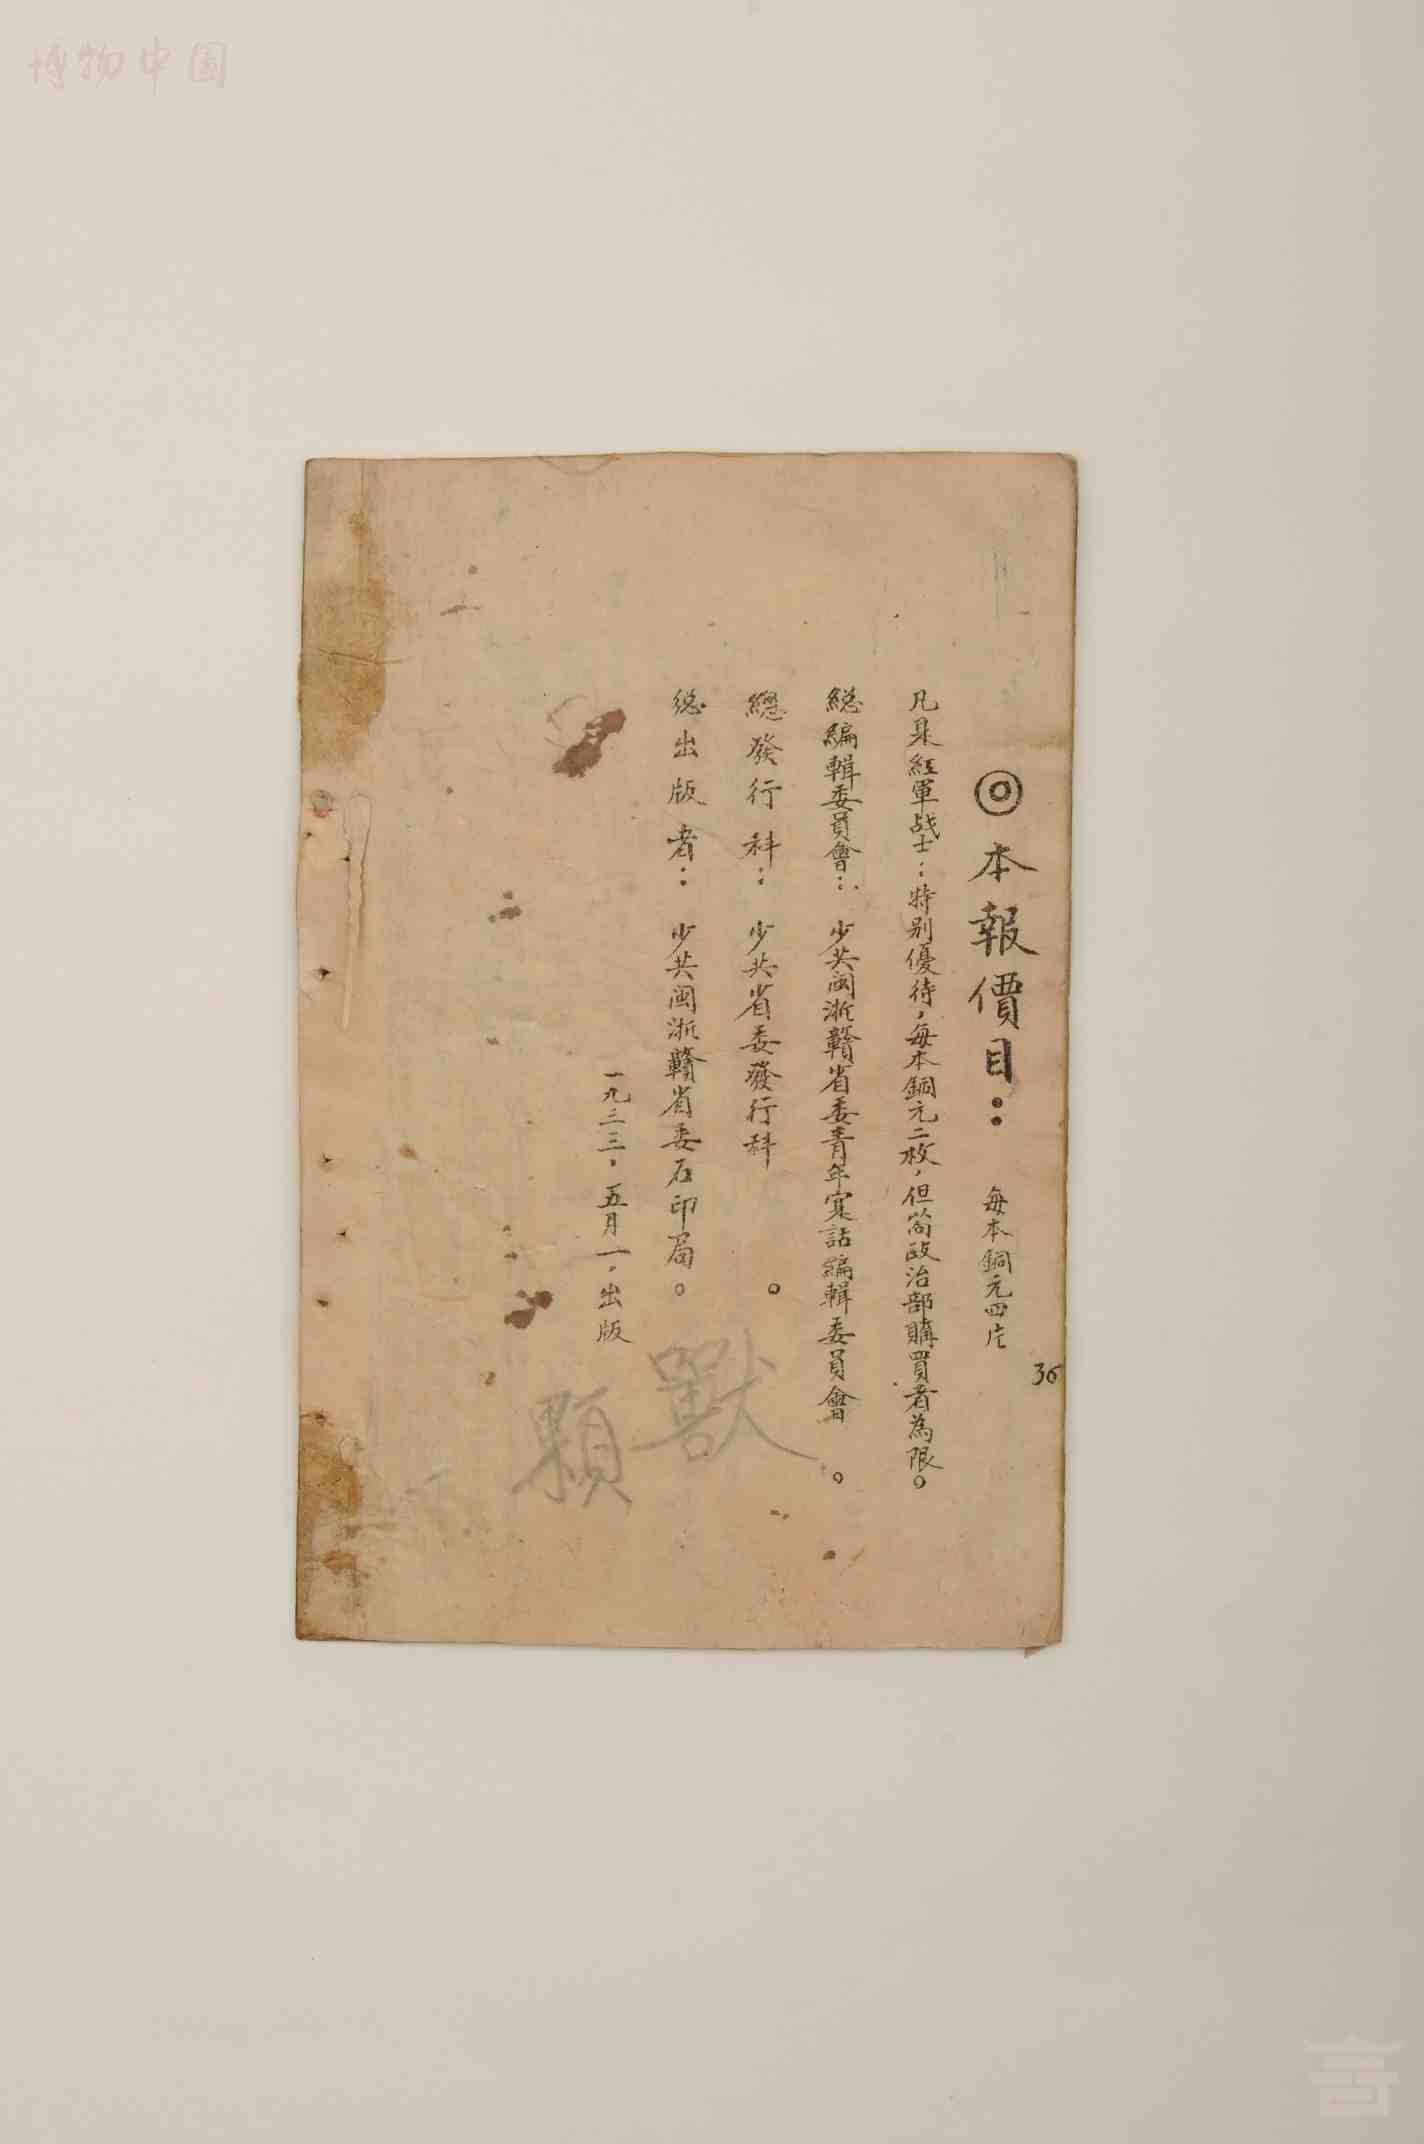 博物中国
◎本報價目：每本銅元四片
36
凡是紅軍战士：特别優待，每本銅元二枚，但尚政治部購買者為限。
総編輯委員會：少共闽浙贛省委青年寔話編輯委員會。
總發行科：少共省委發行科。
総出版者：少共闽浙贛省委石印局。
一九三三，五月一，出版
獸
顆